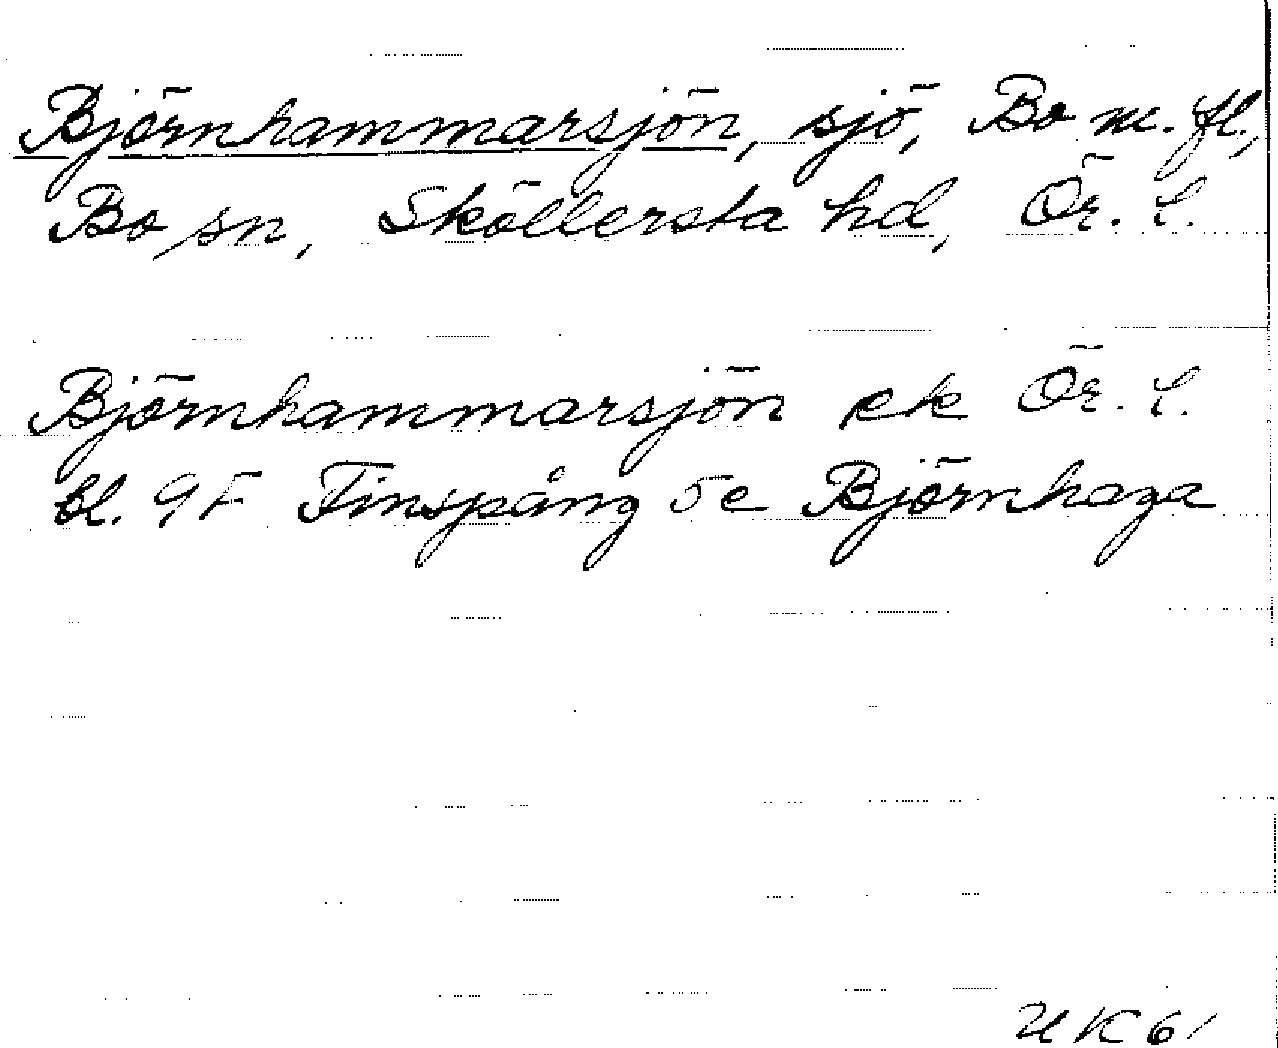 Björnhammarsjön, sjö, Bo m. fl.,
Bo sn, Sköllersta hd, Ör. l.
Björnhammarsjön ek Ör. l.
bl. 9F Finspång 5e Björnhaga
UK61